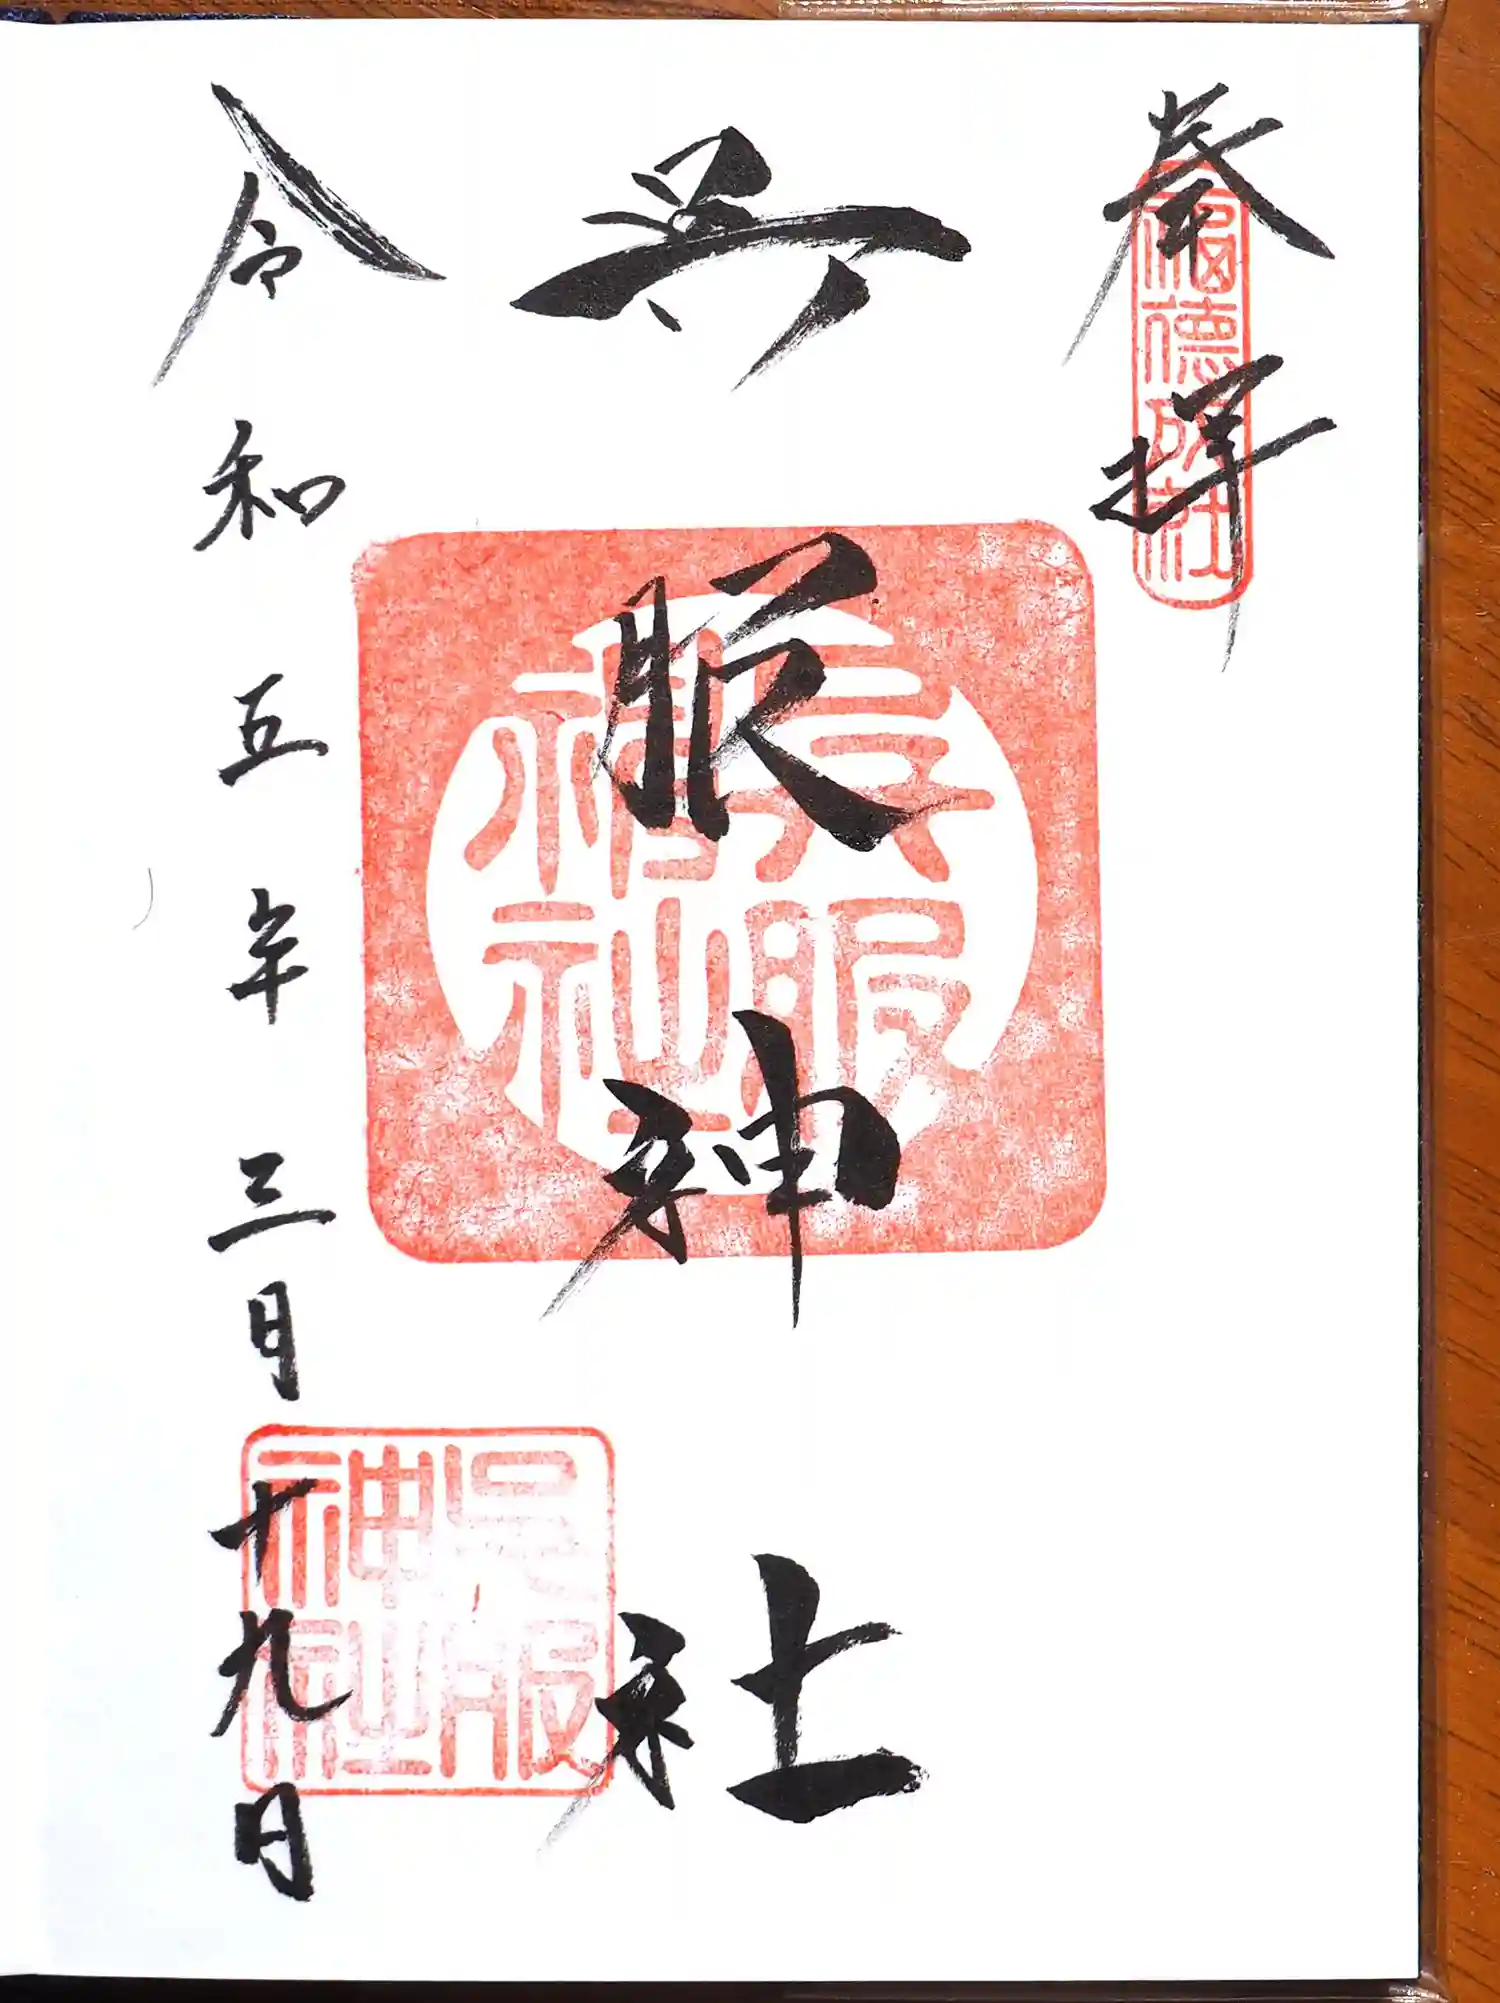 奉拝
福徳
呉服神社
呉服
神社
令和五年三月十九日
呉服
神社